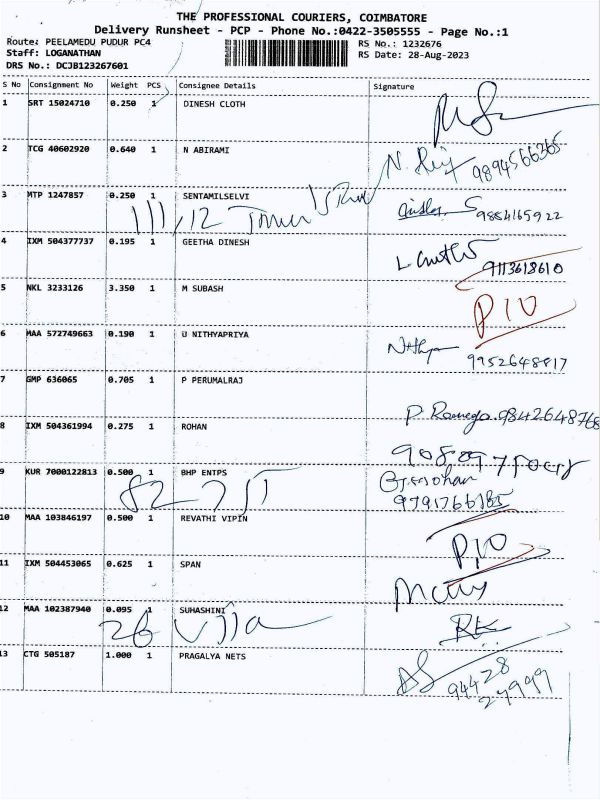 THE PROFESSIONAL COURIERS, COIMBATORE
Delivery Runsheet - PCP - Phone No.:0422-3505555 - Page No.:1
Route: PEELAMEDU PUDUR PC4
Staff: LOGANATHAN
DRS No.: DCJB123267601
RS No.: 1232676
RS Date: 28-Aug-2023
S No Consignment No Weight PCS Consignee Details Signature
1 SRT 15024710 0.250 1 DINESH CLOTH
2 TCG 40602920 0.640 1 N ABIRAMI
9894566365
3 MTP 1247857 0.250 1 SENTAMILSELVI
9884165922
4 IXM 504377737 0.195 1 GEETHA DINESH
9113618610
5 NKL 3233126 3.350 1 M SUBASH
P10
6 MAA 572749663 0.190 1 U NITHYAPRIYA
9952648817
7 GMP 636065 0.705 1 P PERUMALRAJ
8 IXM 504361994 0.275 1 ROHAN
9842648768
9 KUR 7000122813 0.500 1 BHP ENTPS
10 MAA 103846197 0.500 1 REVATHI VIPIN
P10
11 IXM 504453065 0.625 1 SPAN
12 MAA 102387940 0.095 1 SUHASHINI
RK
13 CTG 505187 1.000 1 PRAGALYA NETS
94428